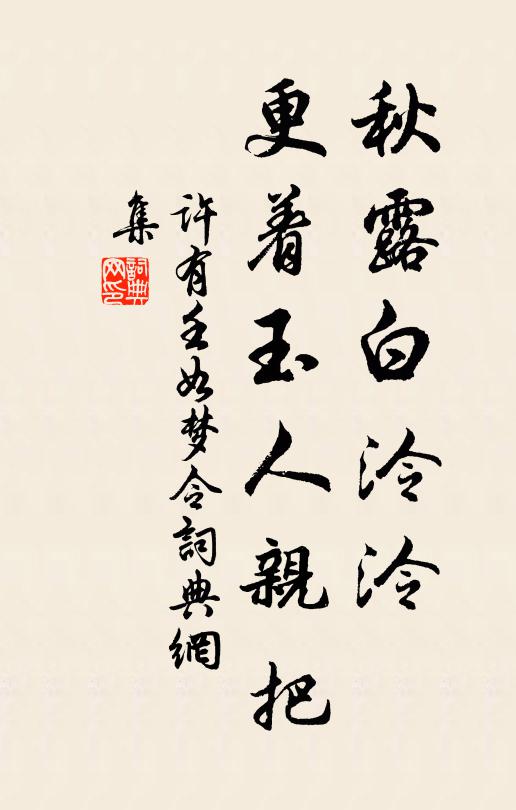 秋露白泠泠
更着玉人親把
许有壬如梦令詞典網
集
詞典網印